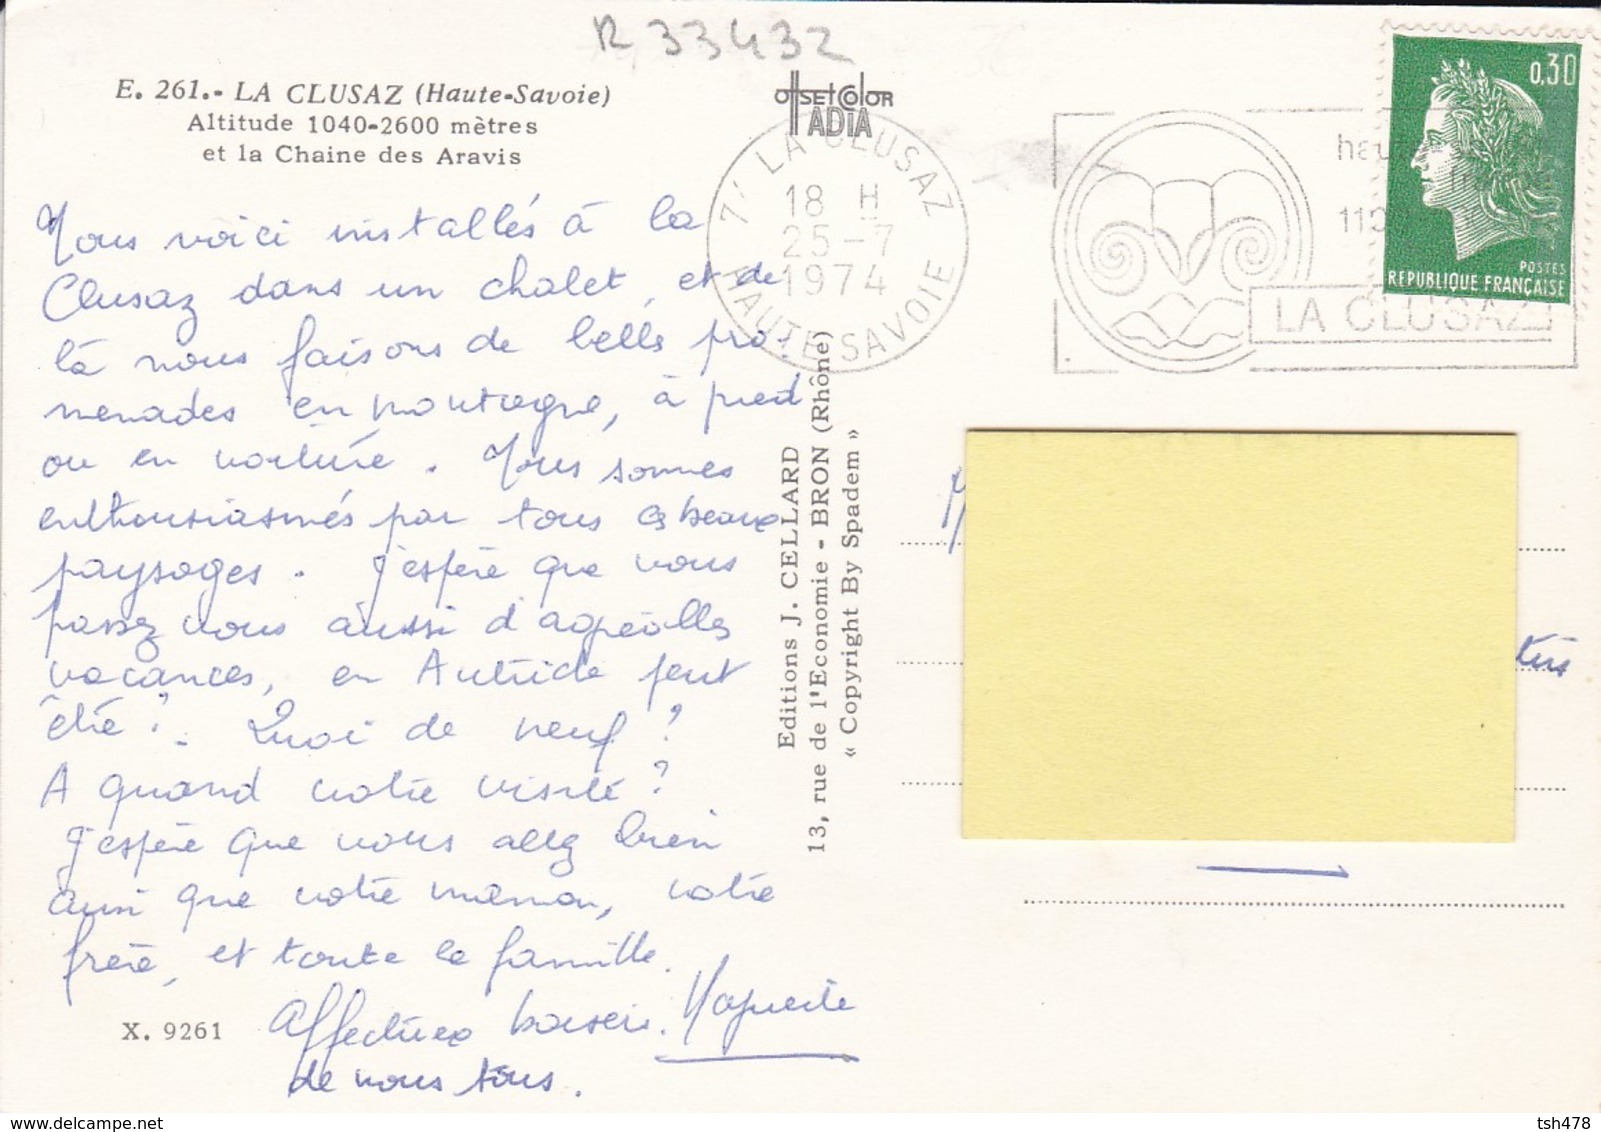 R 33432
E. 261.- LA CLUSAZ (Haute-Savoie)
Altitude 1040-2600 mètres
et la Chaine des Aravis
OffSET COlOR
ADIA
Nous voici installés à la
Clusaz dans un chalet, et de
là nous faisons de belles pro-
menades en montagne, à pied
ou en voiture. Nous sommes
enthousiasmés par tous ces beaux
paysages. J'espère que vous
passez vous aussi d'agréables
vacances, en Autriche peut
être ? Quoi de neuf ?
A quand votre visite ?
J'espère que vous allez bien
ainsi que votre maman, votre
frère, et toute la famille.
Affectueux baisers. Marguerite
de nous tous.
X. 9261
Editions J. CELLARD
13, rue de l'Economie - BRON (Rhône)
« Copyright By Spadem »
LA CLUSAZ
18 H
25-7
1974
HAUTE-SAVOIE
LA CLUSAZ
0,30
POSTES
REPUBLIQUE FRANÇAISE
http://www.delcampe.net
tsh478